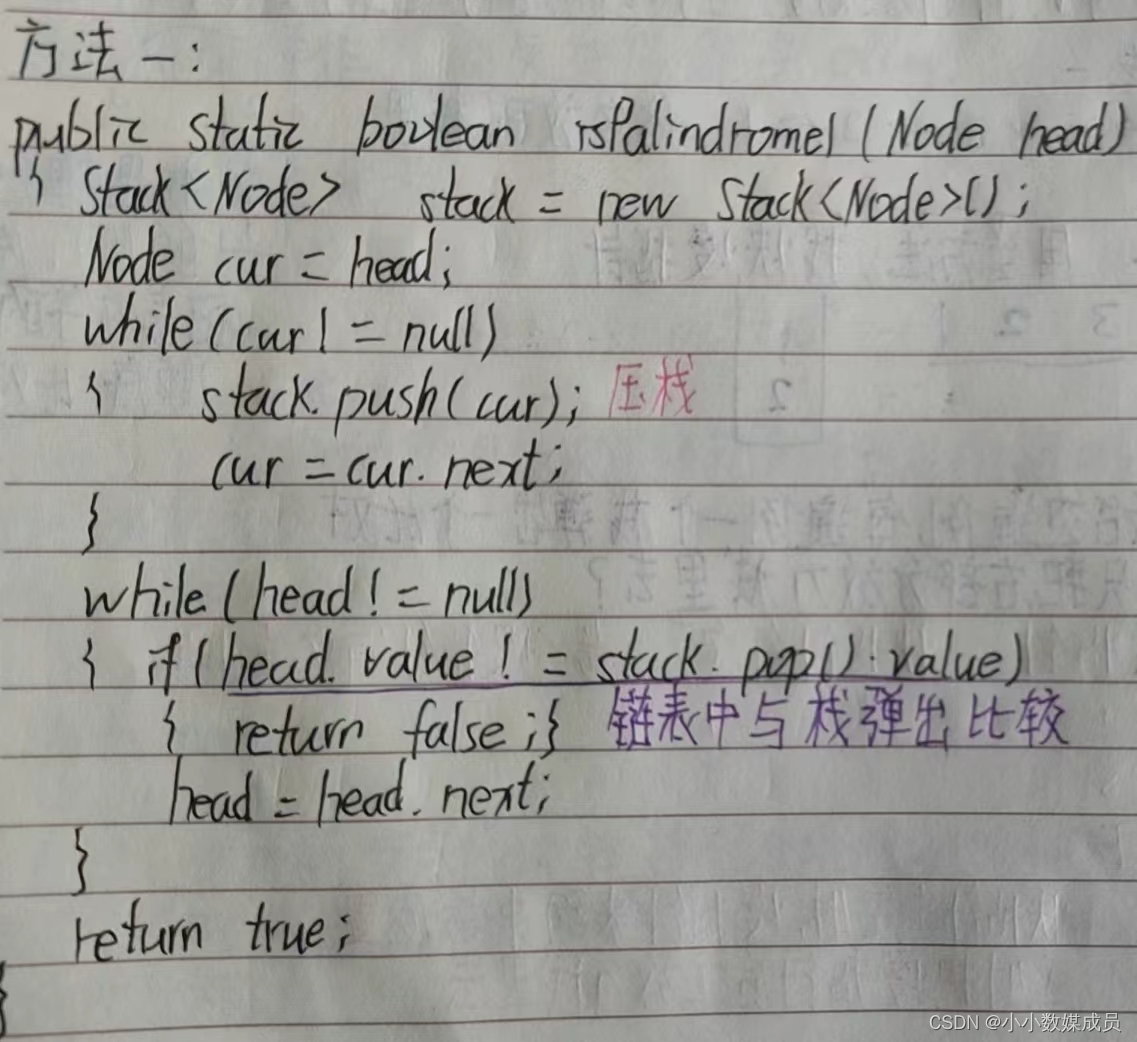 方法一:
public static boolean isPalindrome1(Node head)
{ Stack<Node> stack = new Stack<Node>();
Node cur = head;
while(cur != null)
{ stack.push(cur); 压栈
cur = cur.next;
}
while(head != null)
{ if(head.value != stack.pop().value)
{ return false;} 链表中与栈弹出比较
head = head.next;
}
return true;
}
CSDN @小小数媒成员